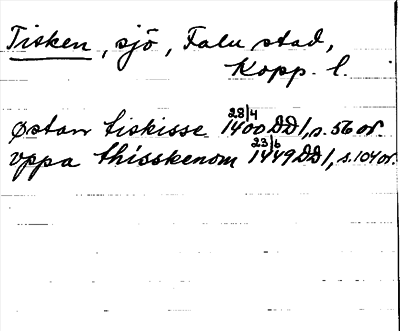 Tisken, sjö, Falu stad,
Kopp. l.
østan tiskisse 28/4 1400 DD 1, s. 56 or.
vppa thisskenom 23/6 1449 DD 1, s. 104 or.